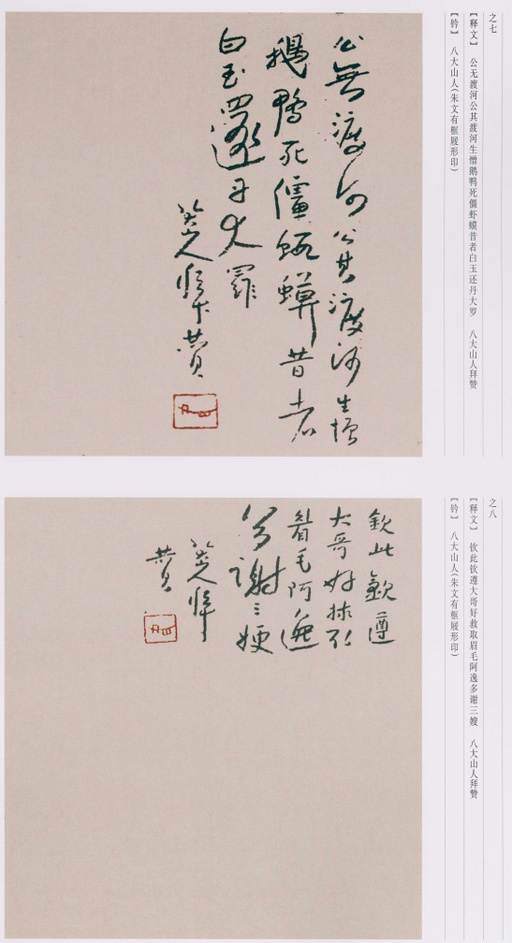 之七
【释文】 公无渡河公其渡河生憎鹅鸭死僵虾蟆昔者白玉还丹大罗 八大山人拜赞
【钤】 八大山人(朱文有框屐形印)
公無渡河公其渡河生憎
鵝鴨死僵蝦蟆昔者
白玉還丹大羅
八大山人拜贊
之八
【释文】 钦此钦遵大哥好救取眉毛阿逸多谢三嫂 八大山人拜赞
【钤】 八大山人(朱文有框屐形印)
欽此欽遵
大哥好捄取
眉毛阿逸
多謝三嫂
八大山人拜
贊